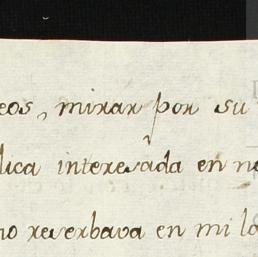 eos, mirar por su
lica interesada en n
no reserbava en mi l